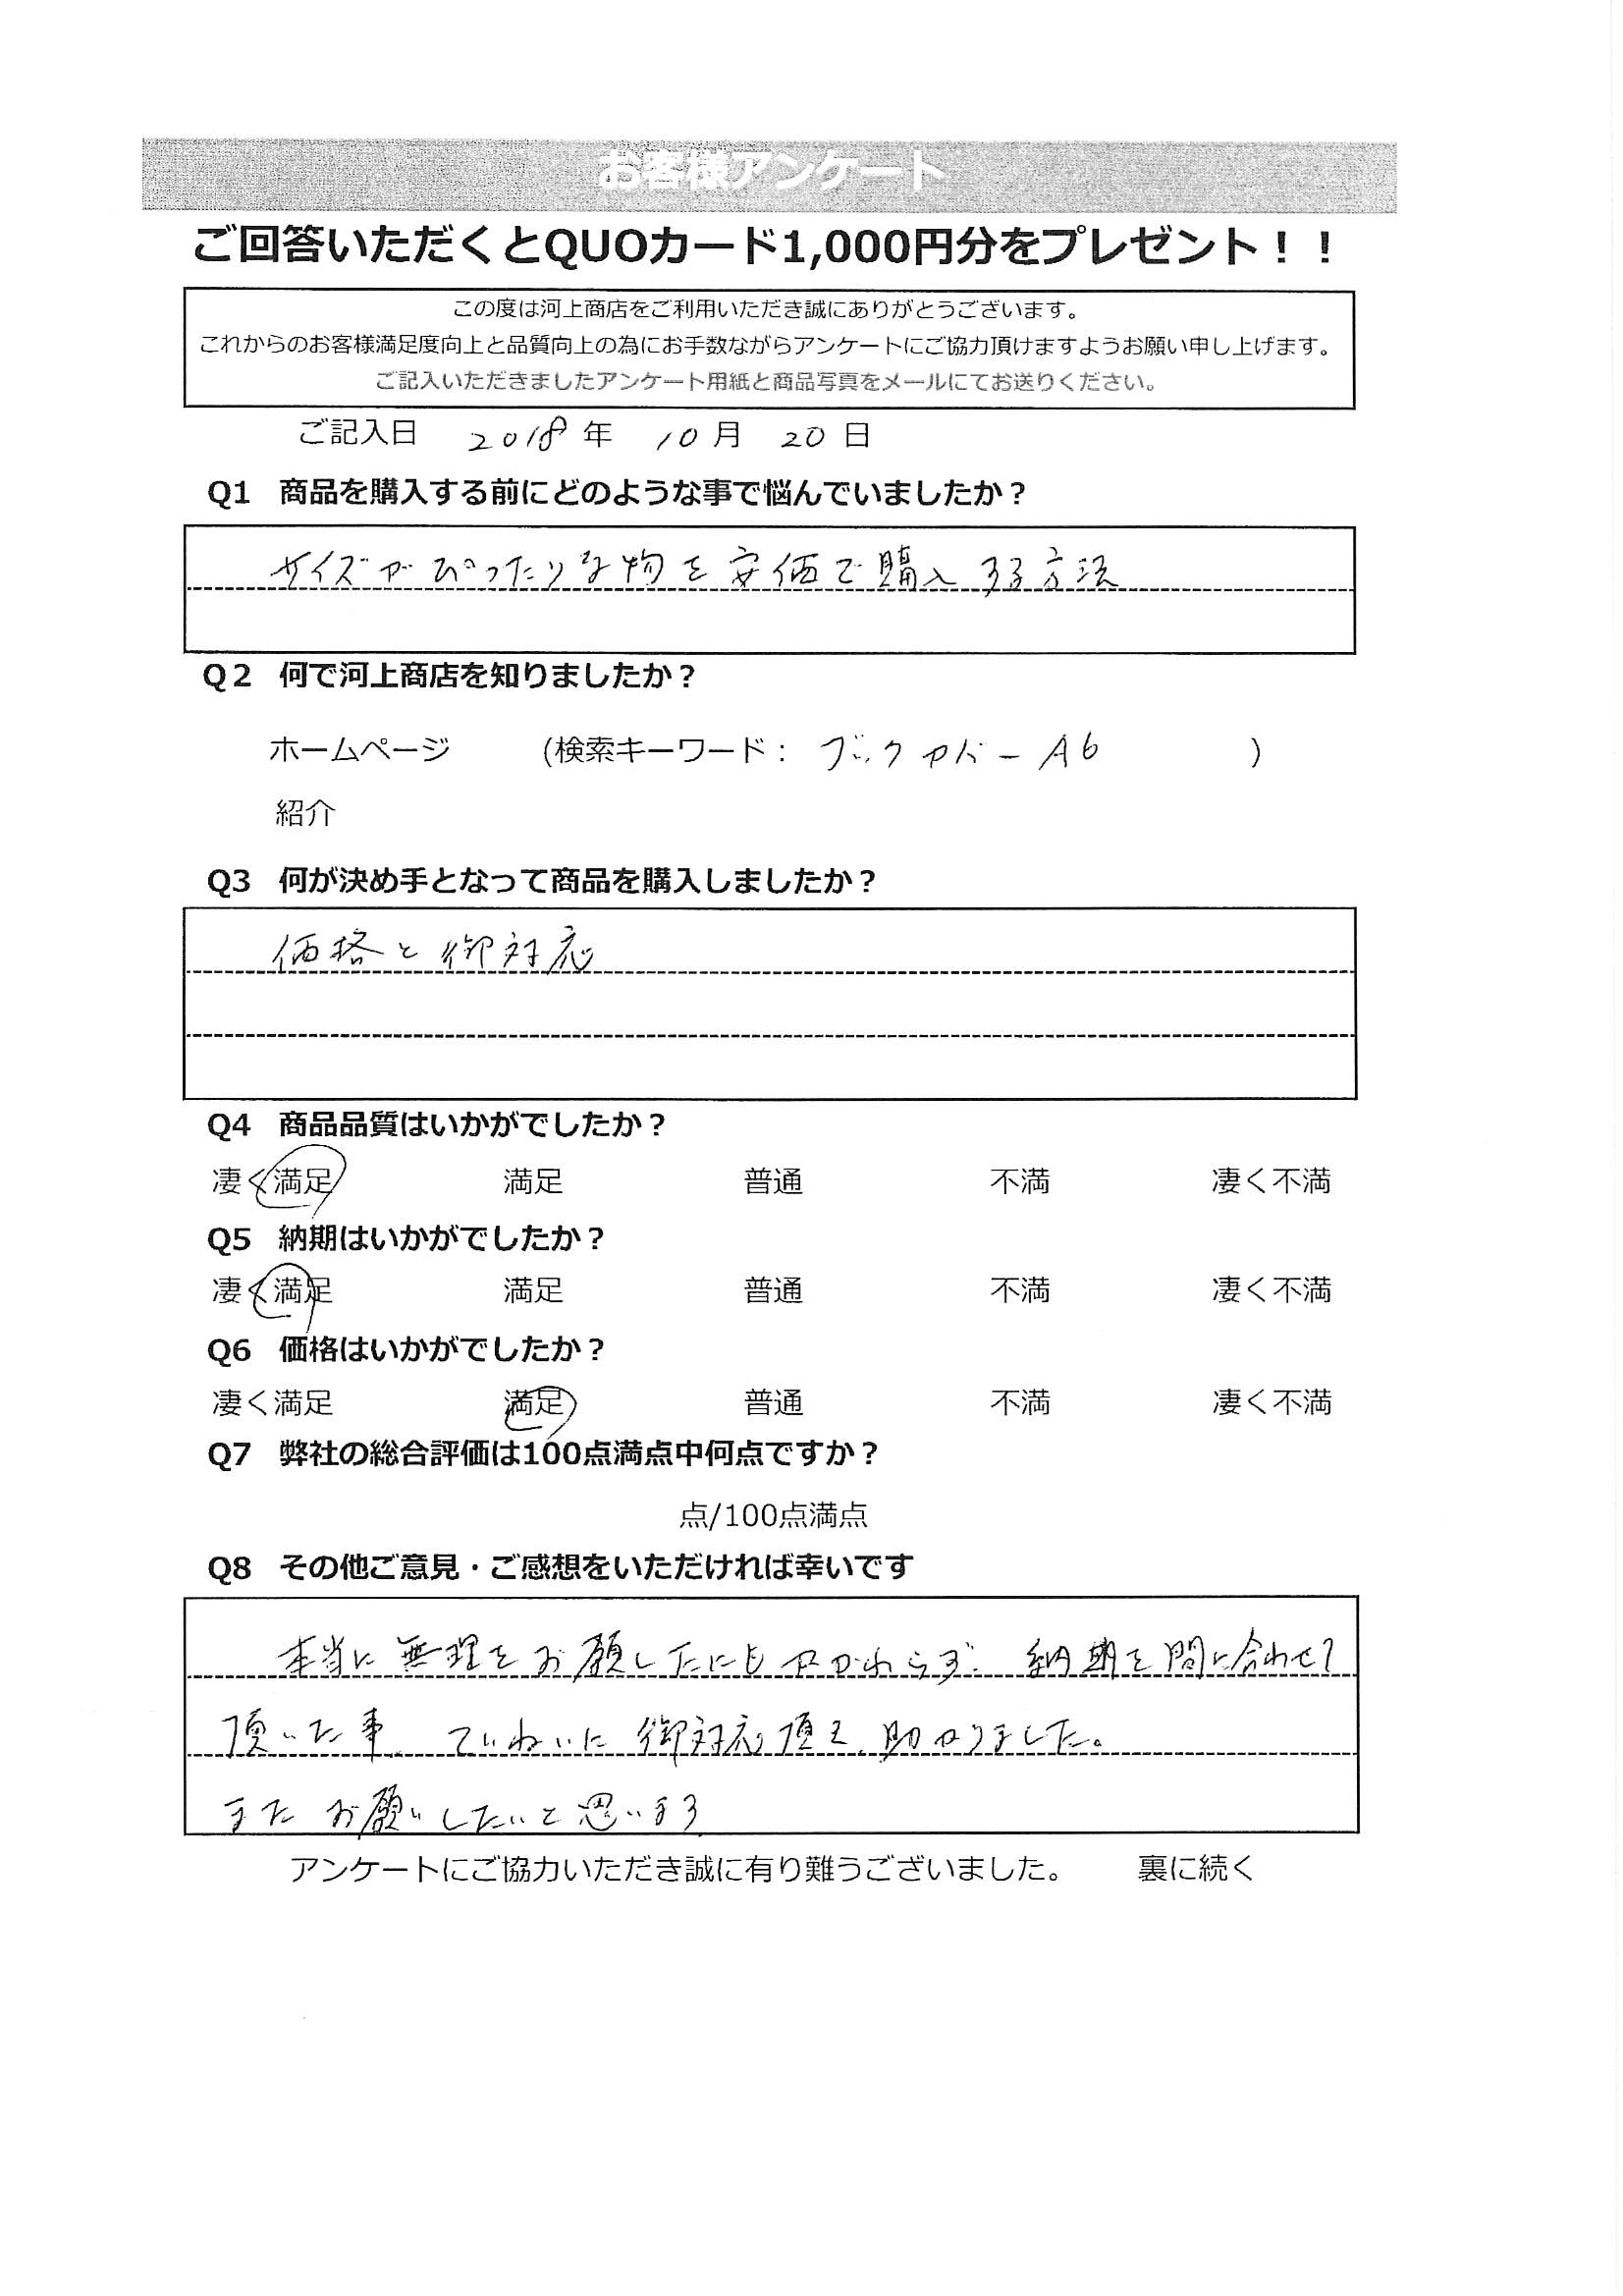 お客様アンケート
ご回答いただくとQUOカード1,000円分をプレゼント！！
この度は河上商店をご利用いただき誠にありがとうございます。
これからのお客様満足度向上と品質向上の為にお手数ながらアンケートにご協力頂けますようお願い申し上げます。
ご記入いただきましたアンケート用紙と商品写真をメールにてお送りください。
ご記入日 2018年 10月 20日
Q1 商品を購入する前にどのような事で悩んでいましたか？
サイズがぴったりな物を安価で購入する方法
Q2 何で河上商店を知りましたか？
ホームページ (検索キーワード： ブックカバー A6 )
紹介
Q3 何が決め手となって商品を購入しましたか？
価格と御対応
Q4 商品品質はいかがでしたか？
凄く満足 満足 普通 不満 凄く不満
Q5 納期はいかがでしたか？
凄く満足 満足 普通 不満 凄く不満
Q6 価格はいかがでしたか？
凄く満足 満足 普通 不満 凄く不満
Q7 弊社の総合評価は100点満点中何点ですか？
点/100点満点
Q8 その他ご意見・ご感想をいただければ幸いです
本当に無理をお願したにもかかわらず、納期を間に合わせて
頂いた事、ていねいに御対応頂き、助かりました。
またお願いしたいと思います
アンケートにご協力いただき誠に有り難うございました。 裏に続く